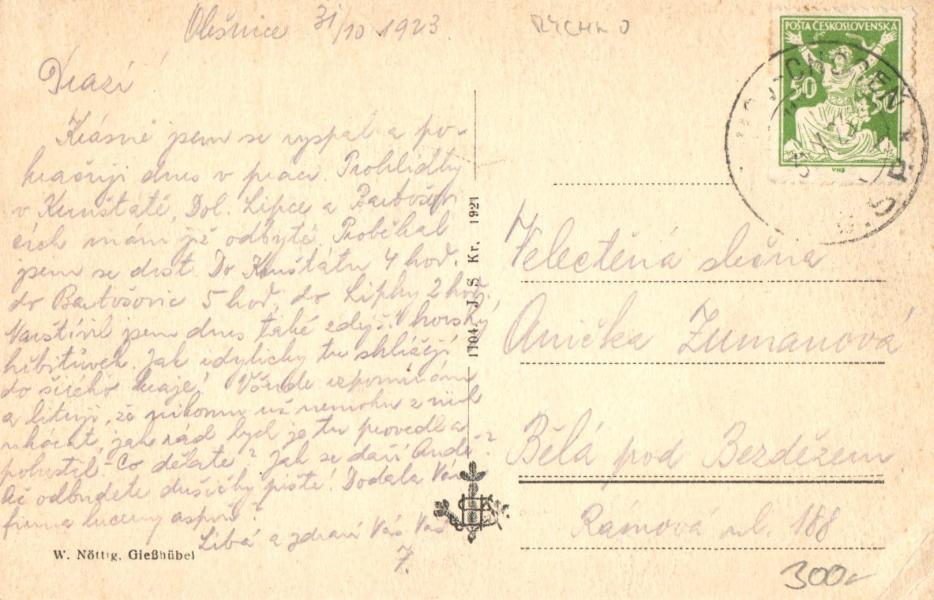 Olešnice 31/10 1923.
RYCHNO
Drazí!
Krásně jsem se vyspal a po-
kračuji dnes v práci. Prohlídky
v Kunštátě, Dol. Lipce a Bartošov-
cích mám již odbyté. Proběhal
jsem se dost. Do Kunštátu 4 hod.
do Bartošovic 5 hod, do Lipky 2 hod.
Navštívil jsem dnes také zdejší horský
hřbitůvek. Jak idylicky tu shlížejí
do širého kraje! Všude vzpomínám
a lituji, že nikomu už nemohu z nich
ukázat, jak rád bych je tu provedl a
pohostil - Co děláte? Jak se daří Andě?
Až odbudete dušičky pište! Dodala Vám
firma lucerny aspoň?
Líbá a zdraví Vás Váš
7.
W. Nöttig, Gießhübel
1104. J S Kr. 1921
POŠTA ČESKOSLOVENSKA
50 50
CHOCEŇ
Č.S.P.
Velectěná slečna
Anička Zumanová
Bělá pod Bezdězem
Rámova ul. 188
300,-